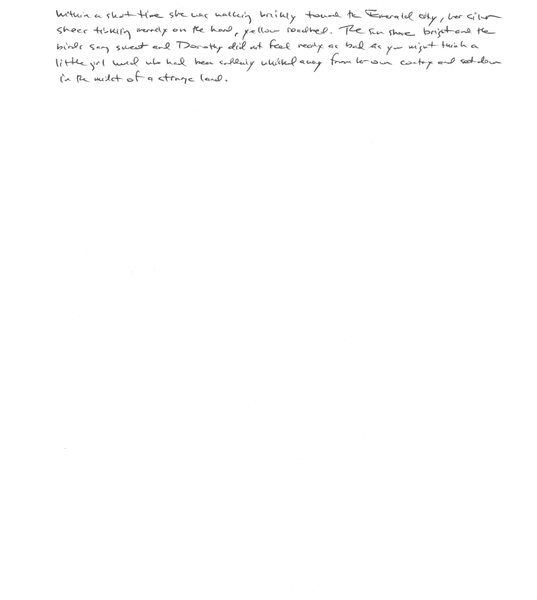 Within a short time she was walking briskly toward the Emerald City, her silver
shoes tinkling merrily on the hard, yellow roadbed. The sun shone bright and the
birds sang sweet and Dorothy did not feel nearly as bad as you might think a
little girl would who had been suddenly whisked away from her own country and set down
in the midst of a strange land.